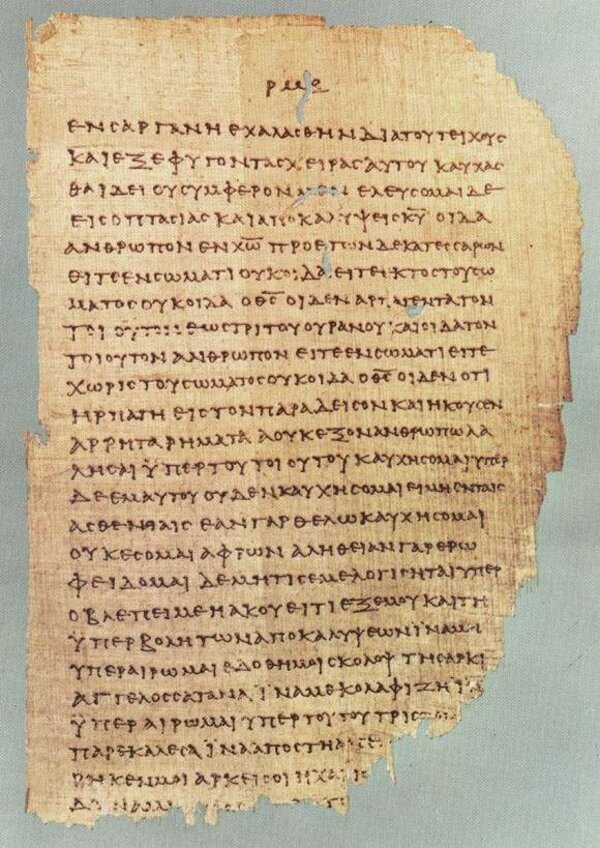 ΕΝϹΑΡΓΑΝΗΕΧΑΛΑϹΘΗΝΔΙΑΤΟΥΤΕΙΧΟΥϹ
ΚΑΙΕΞΕΦΥΓΟΝΤΑϹΧΕΙΡΑϹΑΥΤΟΥΚΑΥΧΑϹ
ΘΑΙΔΕΙΟΥϹΥΜΦΕΡΟΝΜΕΝΕΛΕΥϹΟΜΑΙΔΕ
ΕΙϹΟΠΤΑϹΙΑϹΚΑΙΑΠΟΚΑΛΥΨΕΙϹΚ̅Υ̅ΟΙΔΑ
ΑΝΘΡΩΠΟΝΕΝΧ̅Ω̅ΠΡΟΕΤΩΝΔΕΚΑΤΕϹϹΑΡΩΝ
ΕΙΤΕΕΝϹΩΜΑΤΙΟΥΚΟΙΔΑΕΙΤΕΕΚΤΟϹΤΟΥϹΩ
ΜΑΤΟϹΟΥΚΟΙΔΑΟΘ̅Ϲ̅ΟΙΔΕΝΑΡΠΑΓΕΝΤΑΤΟΝ
ΤΟΙΟΥΤΟΝΕΩϹΤΡΙΤΟΥΟΥΡΑΝΟΥΚΑΙΟΙΔΑΤΟΝ
ΤΟΙΟΥΤΟΝΑΝΘΡΩΠΟΝΕΙΤΕΕΝϹΩΜΑΤΙΕΙΤΕ
ΧΩΡΙϹΤΟΥϹΩΜΑΤΟϹΟΥΚΟΙΔΑΟΘ̅Ϲ̅ΟΙΔΕΝΟΤΙ
ΗΡΠΑΓΗΕΙϹΤΟΝΠΑΡΑΔΕΙϹΟΝΚΑΙΗΚΟΥϹΕΝ
ΑΡΡΗΤΑΡΗΜΑΤΑΑΟΥΚΕΞΟΝΑΝΘΡΩΠΩΛΑ
ΛΗϹΑΙΫΠΕΡΤΟΥΤΟΙΟΥΤΟΥΚΑΥΧΗϹΟΜΑΙΥΠΕΡ
ΔΕΕΜΑΥΤΟΥΟΥΔΕΝΚΑΥΧΗϹΟΜΑΙΕΙΜΗΕΝΤΑΙϹ
ΑϹΘΕΝΕΙΑΙϹΕΑΝΓΑΡΘΕΛΩΚΑΥΧΗϹΟΜΑΙ
ΟΥΚΕϹΟΜΑΙΑΦΡΩΝΑΛΗΘΕΙΑΝΓΑΡΕΡΩ
ΦΕΙΔΟΜΑΙΔΕΜΗΤΙϹΕΜΕΛΟΓΙϹΗΤΑΙΥΠΕΡ
ΟΒΛΕΠΕΙΜΕΗΑΚΟΥΕΙΤΙΕΞΕΜΟΥΚΑΙΤΗ
ΫΠΕΡΒΟΛΗΤΩΝΑΠΟΚΑΛΥΨΕΩΝΙΝΑΜΗ
ΥΠΕΡΑΙΡΩΜΑΙΕΔΟΘΗΜΟΙϹΚΟΛΟΨΤΗϹΑΡΚΙ
ΑΓΓΕΛΟϹϹΑΤΑΝΑΪΝΑΜΕΚΟΛΑΦΙΖΗΙΝΑ
ΫΠΕΡΑΙΡΩΜΑΙΥΠΕΡΤΟΥΤΟΥΤΡΙϹ
ΠΑΡΕΚΑΛΕϹΑΪΝΑΑΠΟϹΤΗΑΠΕ
ΡΗΚΕΝΜΟΙΑΡΚΕΙϹΟΙΗΧΑΡΙϹ
ΔΥΝΑΜΙϹ